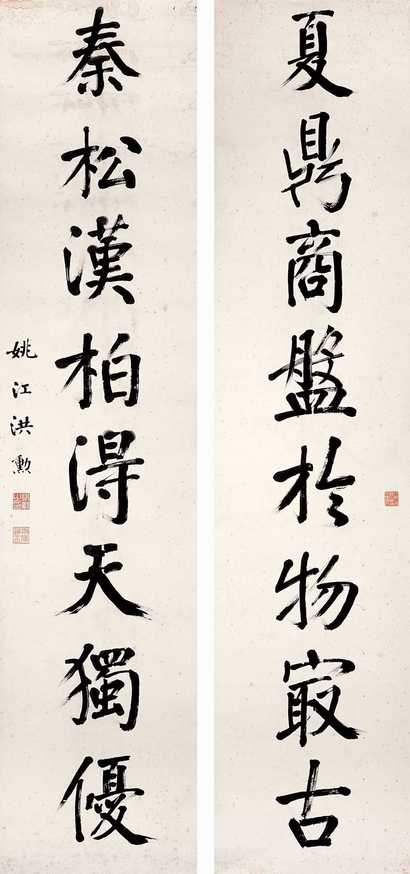 夏鼎商盤於物㝡古
秦松漢柏得天獨優
姚江洪勲